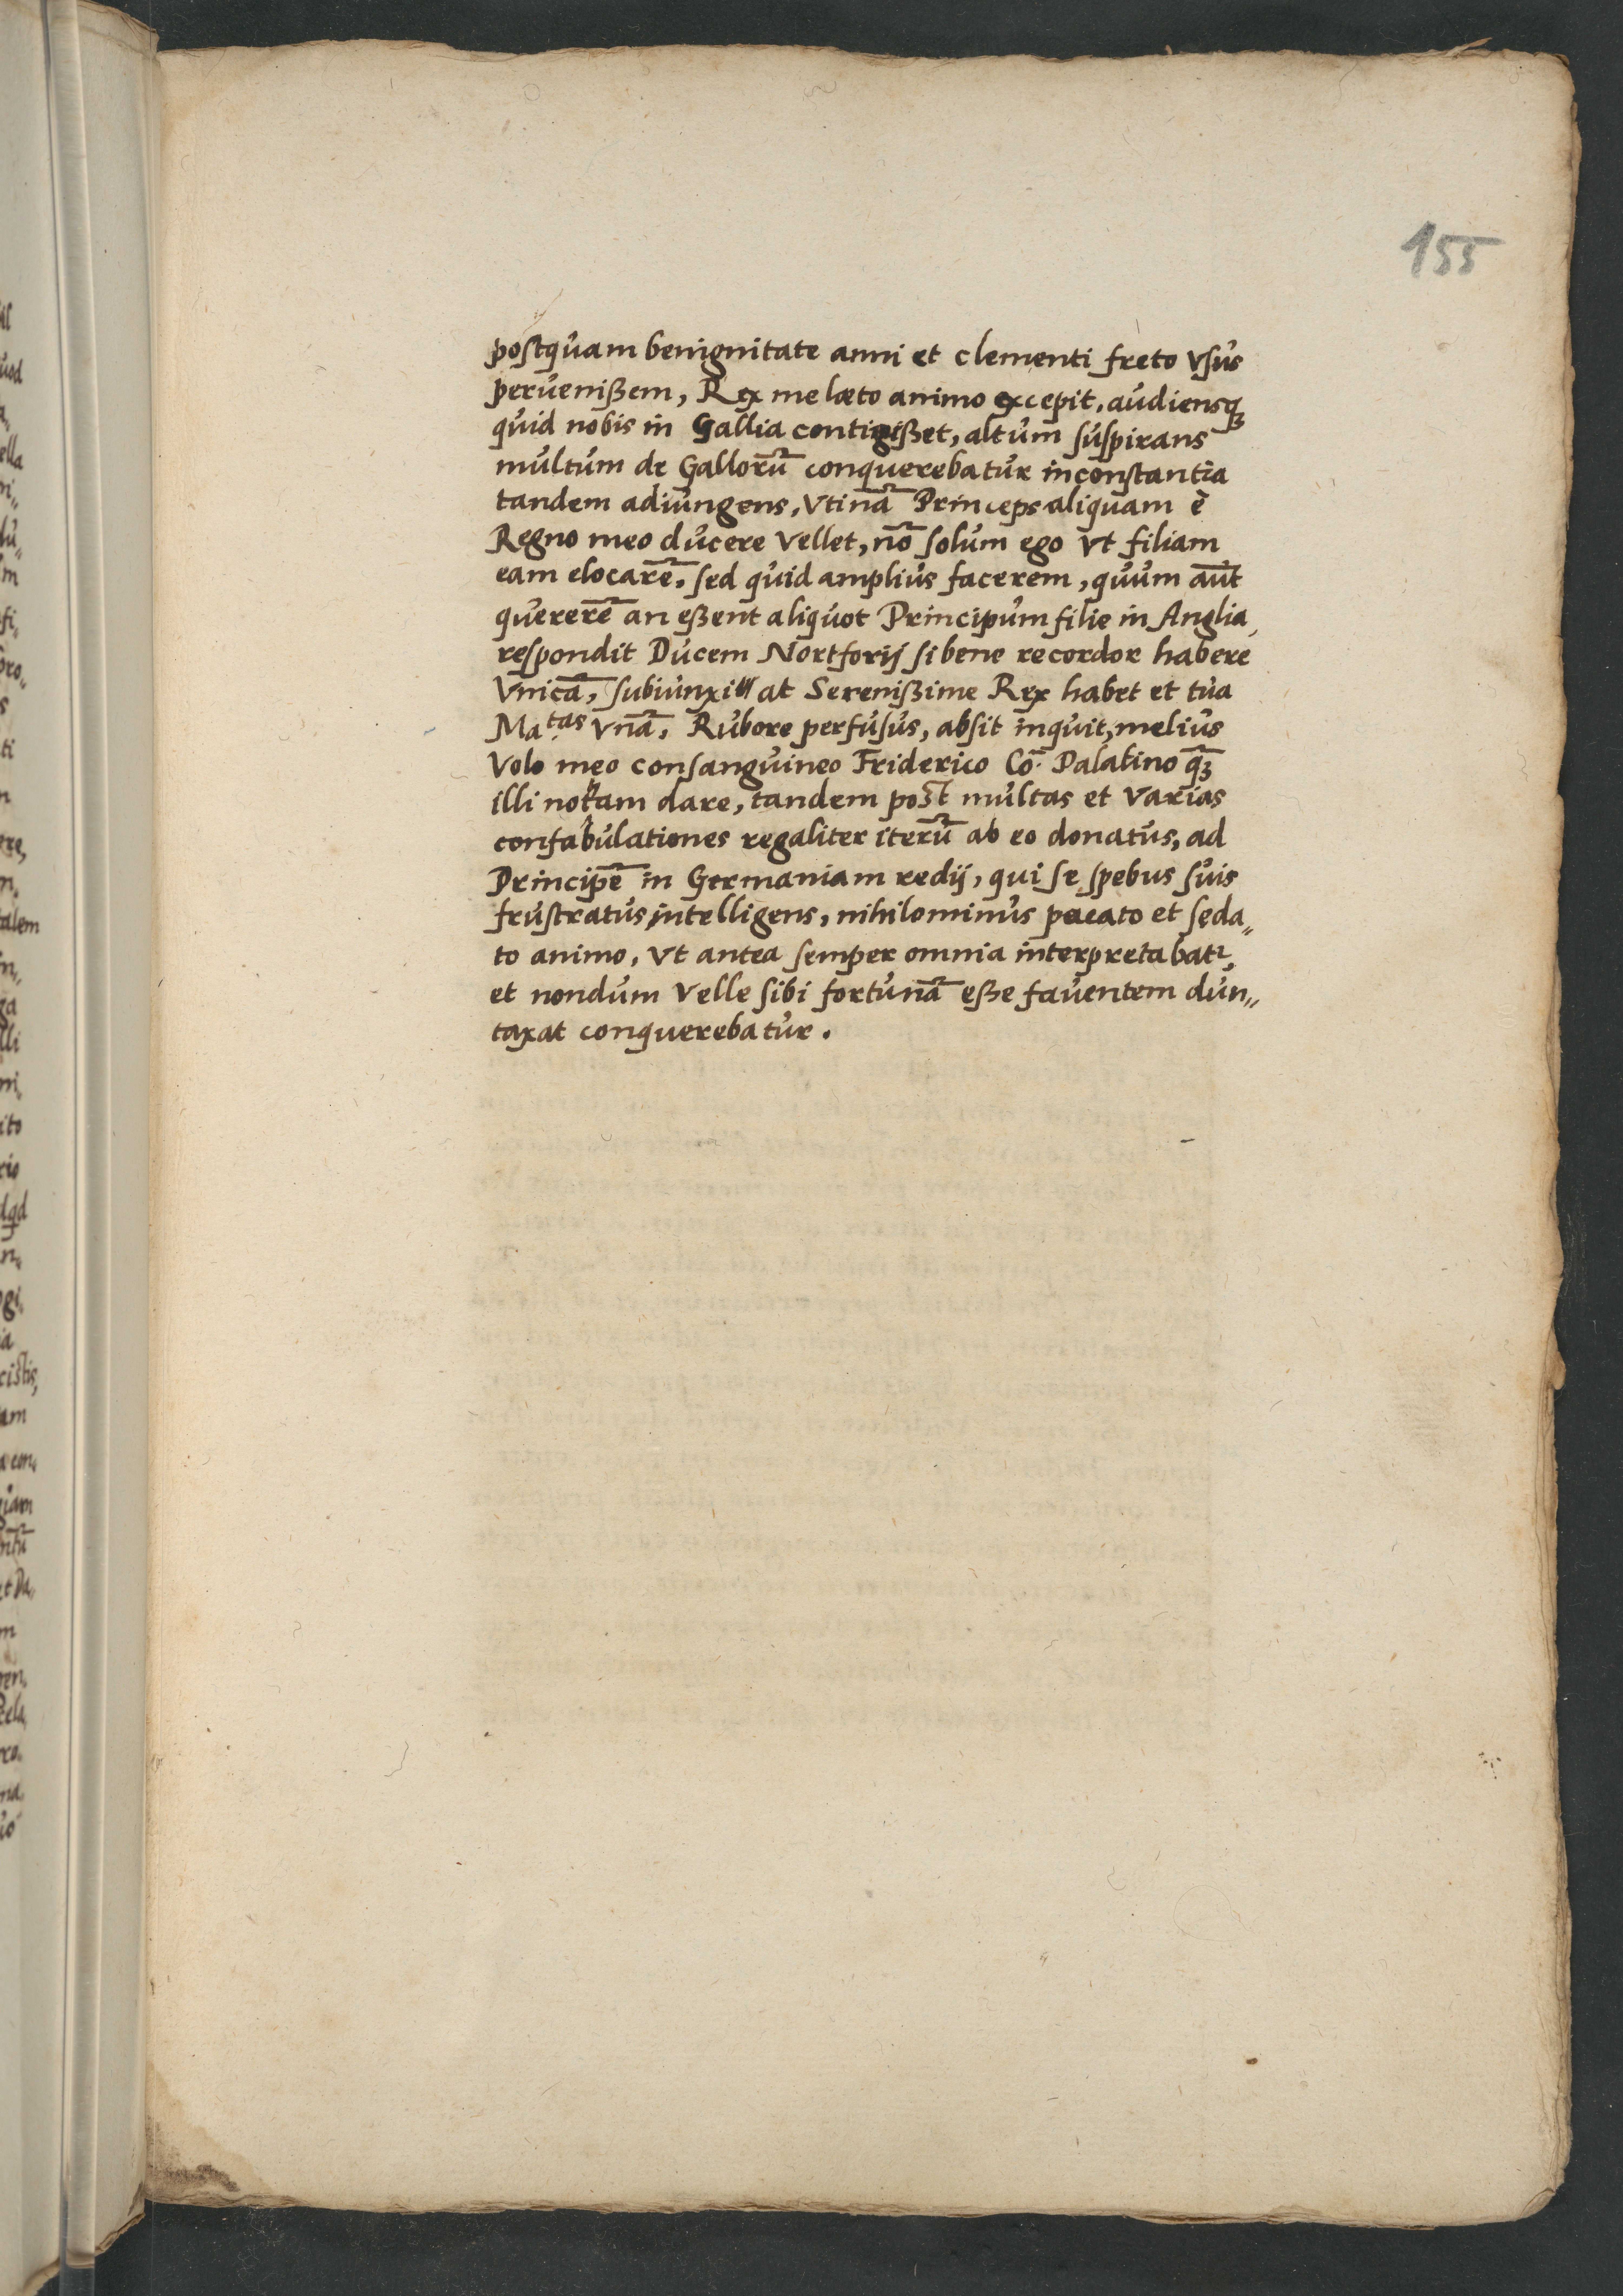 155
postquam benignitate anni et clementi freto vsus
peruenißem, Rex me læto animo excepit, audiensq́ꝫ
quid nobis in Gallia contigißet, altum suspirans
multum de Gallorū conquerebatur inconstantia
tandem adiungens, vtinā Princeps aliquam è
Regno meo ducere vellet, nō solum ego vt filiam
eam elocarē, sed quid amplius facerem, quum aūt
quererē an eßent aliquot Principum filie in Anglia,
respondit Ducem Nortforij si bene recordor habere
Vnicā, subiunxi at Serenißime Rex habet et tua
Ma.tas vnā, Rubore perfusus, absit inquit, melius
volo meo consanguineo Friderico Cō. Palatino qꝫ̄
illi notam dare, tandem post multas et varias
confabulationes regaliter iterū ab eo donatus, ad
Principē in Germaniam redij, qui se spebus suis
frustratus intelligens, nihilominus pacato et seda„
to animo, vt antea semper omnia interpretabatr,
et nondum velle sibi fortunā eße fauentem dun„
taxat conquerebatur.